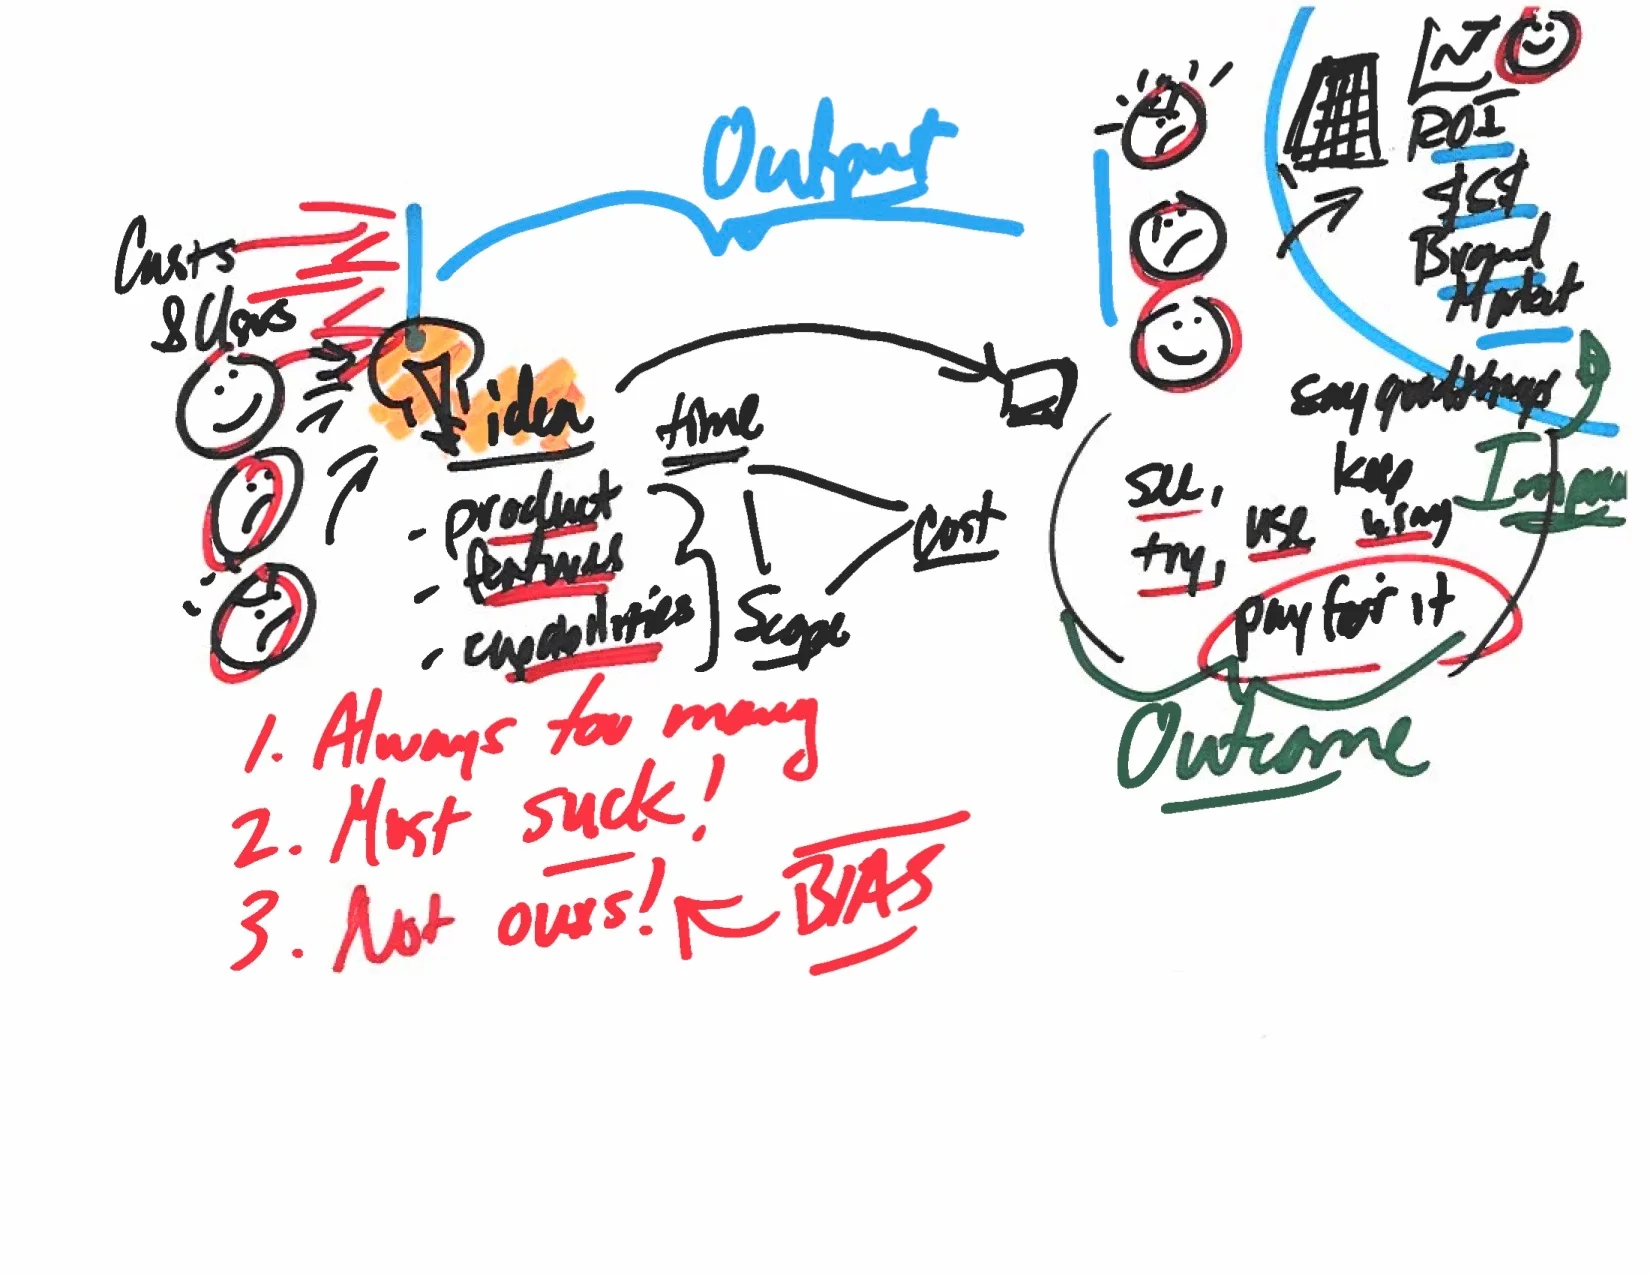 Output
Custs
& Users
idea
- product
- features
- capabilities
time
Scope
cost
ROI
$$$
Brand
Market
say good things
see,
try,
use
keep
using
pay for it
Impac
Outcome
1. Always too many
2. Most suck!
3. Not ours!
BIAS